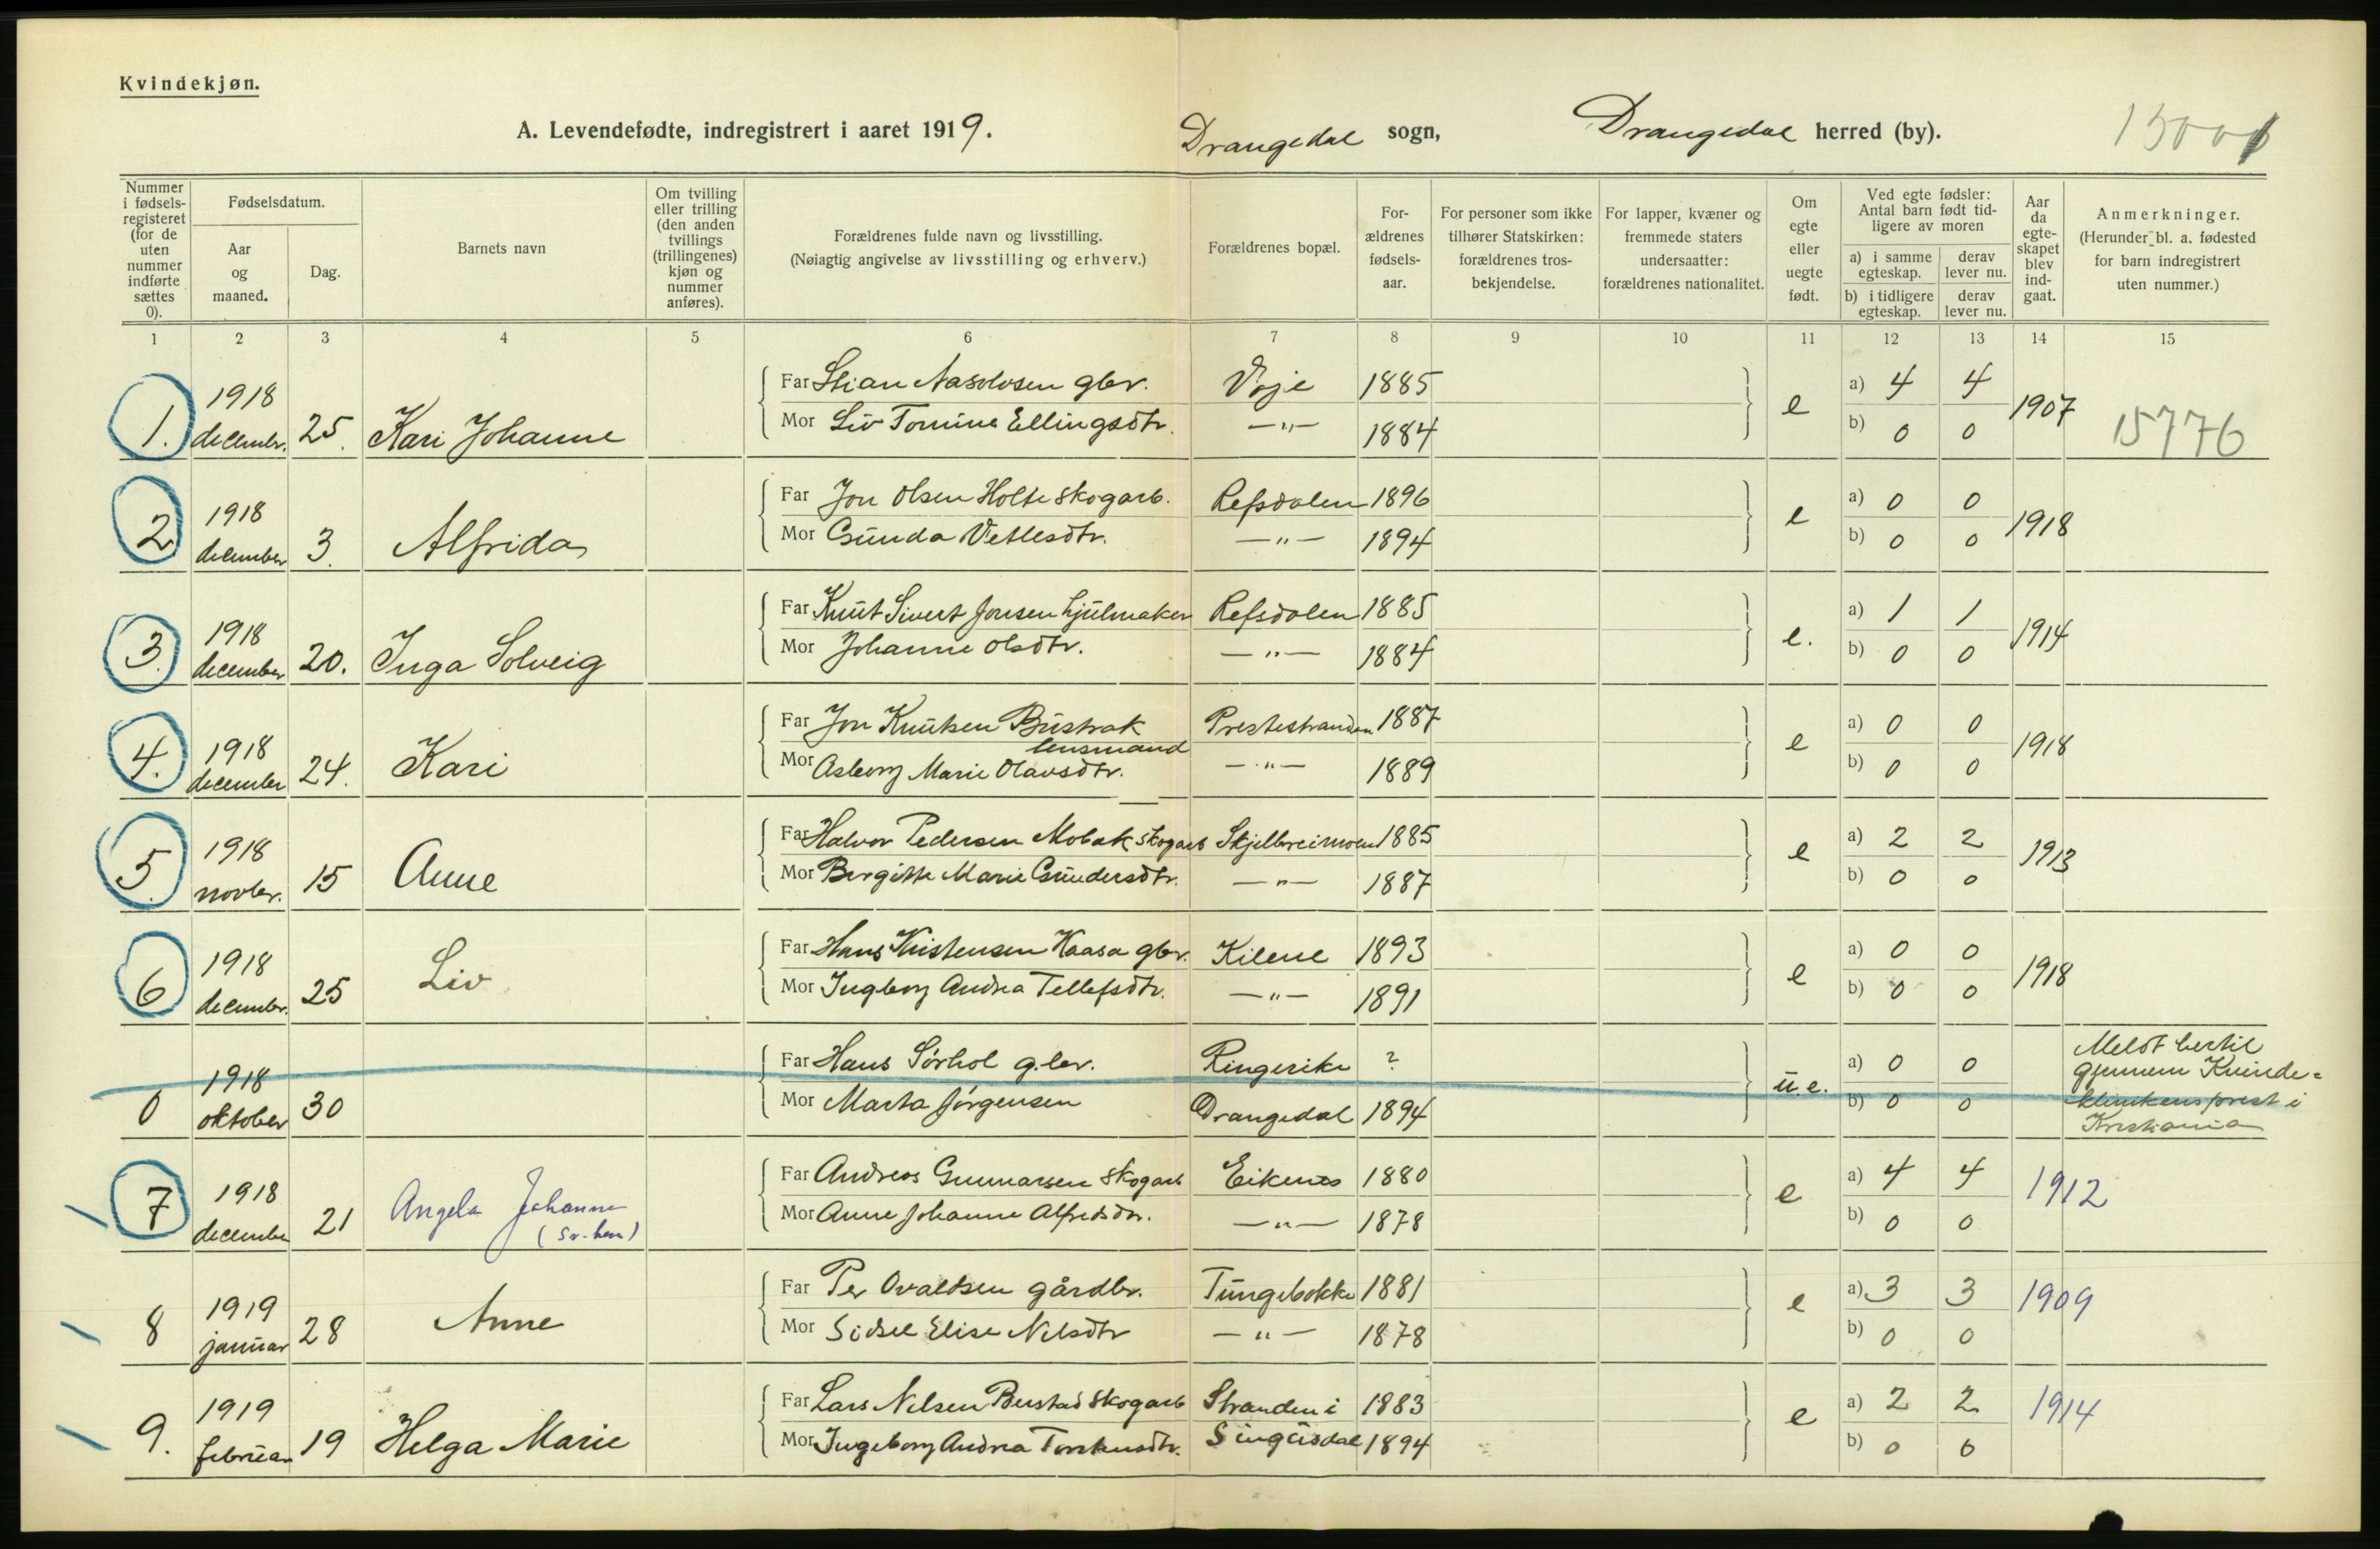 Kvindekjøn.
A. Levendefødte, indregistrert i aaret 1919.
Drangedal sogn,
Drangedal herred (by).
Nummer i fødsels-registeret (for de uten nummer indførte sættes 0).
Fødselsdatum.
Aar og maaned.
Dag.
Barnets navn
Om tvilling eller trilling (den anden tvillings (trillingenes) kjøn og nummer anføres).
Forældrenes fulde navn og livsstilling.
(Nøiagtig angivelse av livsstilling og erhverv.)
Forældrenes bopæl.
For-ældrenes fødsels-aar.
For personer som ikke tilhører Statskirken: forældrenes tros-bekjendelse.
For lapper, kvæner og fremmede staters undersaatter: forældrenes nationalitet.
Om egte eller uegte født.
Ved egte fødsler: Antal barn født tid-ligere av moren
a) i samme egteskap. derav lever nu.
b) i tidligere egteskap. derav lever nu.
Aar da egte-skapet blev ind-gaat.
Anmerkninger.
(Herunder bl. a. fødested for barn indregistrert uten nummer.)
1 2 3 4 5 6 7 8 9 10 11 12 13 14 15
1. 1918 decembr. 25. Kari Johanne
Far Stian Aasolvsen gbr. Voje 1885 e a) 4 4 1907
Mor Liv Tomine Ellingsdtr. —"— 1884 b) 0 0 15776
2 1918 december 3. Alfrida
Far Jon Olsen Holte skogarb. Refsdalen 1896 e a) 0 0 1918
Mor Gunda Vetlesdtr. —"— 1894 b) 0 0
3. 1918 december 20. Inga Solveig
Far Knut Sivert Jonsen hjulmaker Refsdalen 1885 e. a) 1 1 1914
Mor Johanne Olsdtr. —"— 1884 b) 0 0
4. 1918 december 24. Kari
Far Jon Knutsen Bustrak lensmand Prestestranden 1887 e a) 0 0 1918
Mor Asborg Marie Olavsdtr. —"— 1889 b) 0 0
5. 1918 novbr. 15 Anne
Far Halvor Pedersen Mobak skogarb Skjelbreimoen 1885 e a) 2 2 1913
Mor Birgitte Marie Gundersdtr. —"— 1887 b) 0 0
6 1918 decembr. 25 Liv
Far Hans Kristensen Kaasa gbr. Kilene 1893 e a) 0 0 1918
Mor Ingborg Andrea Tellefsdtr. —"— 1891 b) 0 0
0 1918 oktober 30
Far Hans Sørhol g.br. Ringerike ? u.e. a) 0 0
Mor Marta Jørgensen Drangedal 1894 b) 0 0
Meldt hertil
gjennem Kvinde=
klinikens prest i
Kristiania
7 1918 december 21 Angela Johanne
Far Andreas Gunnarsen skogarb Eikenes 1880 e a) 4 4 1912
Mor Anne Johanne Alfredsdtr. —"— 1878 b) 0 0
8 1919 januar 28 Anne
Far Per Ovaldsen gårdbr. Tungebokke 1881 e a) 3 3 1909
Mor Sidsel Elise Nilsdtr —"— 1878 b) 0 0
9. 1919 februar 19 Helga Marie
Far Lars Nilsen Bustad skogarb Stranden i 1883 e a) 2 2 1914
Mor Ingeborg Andrea Torstensdtr. Singusdal 1894 b) 0 0